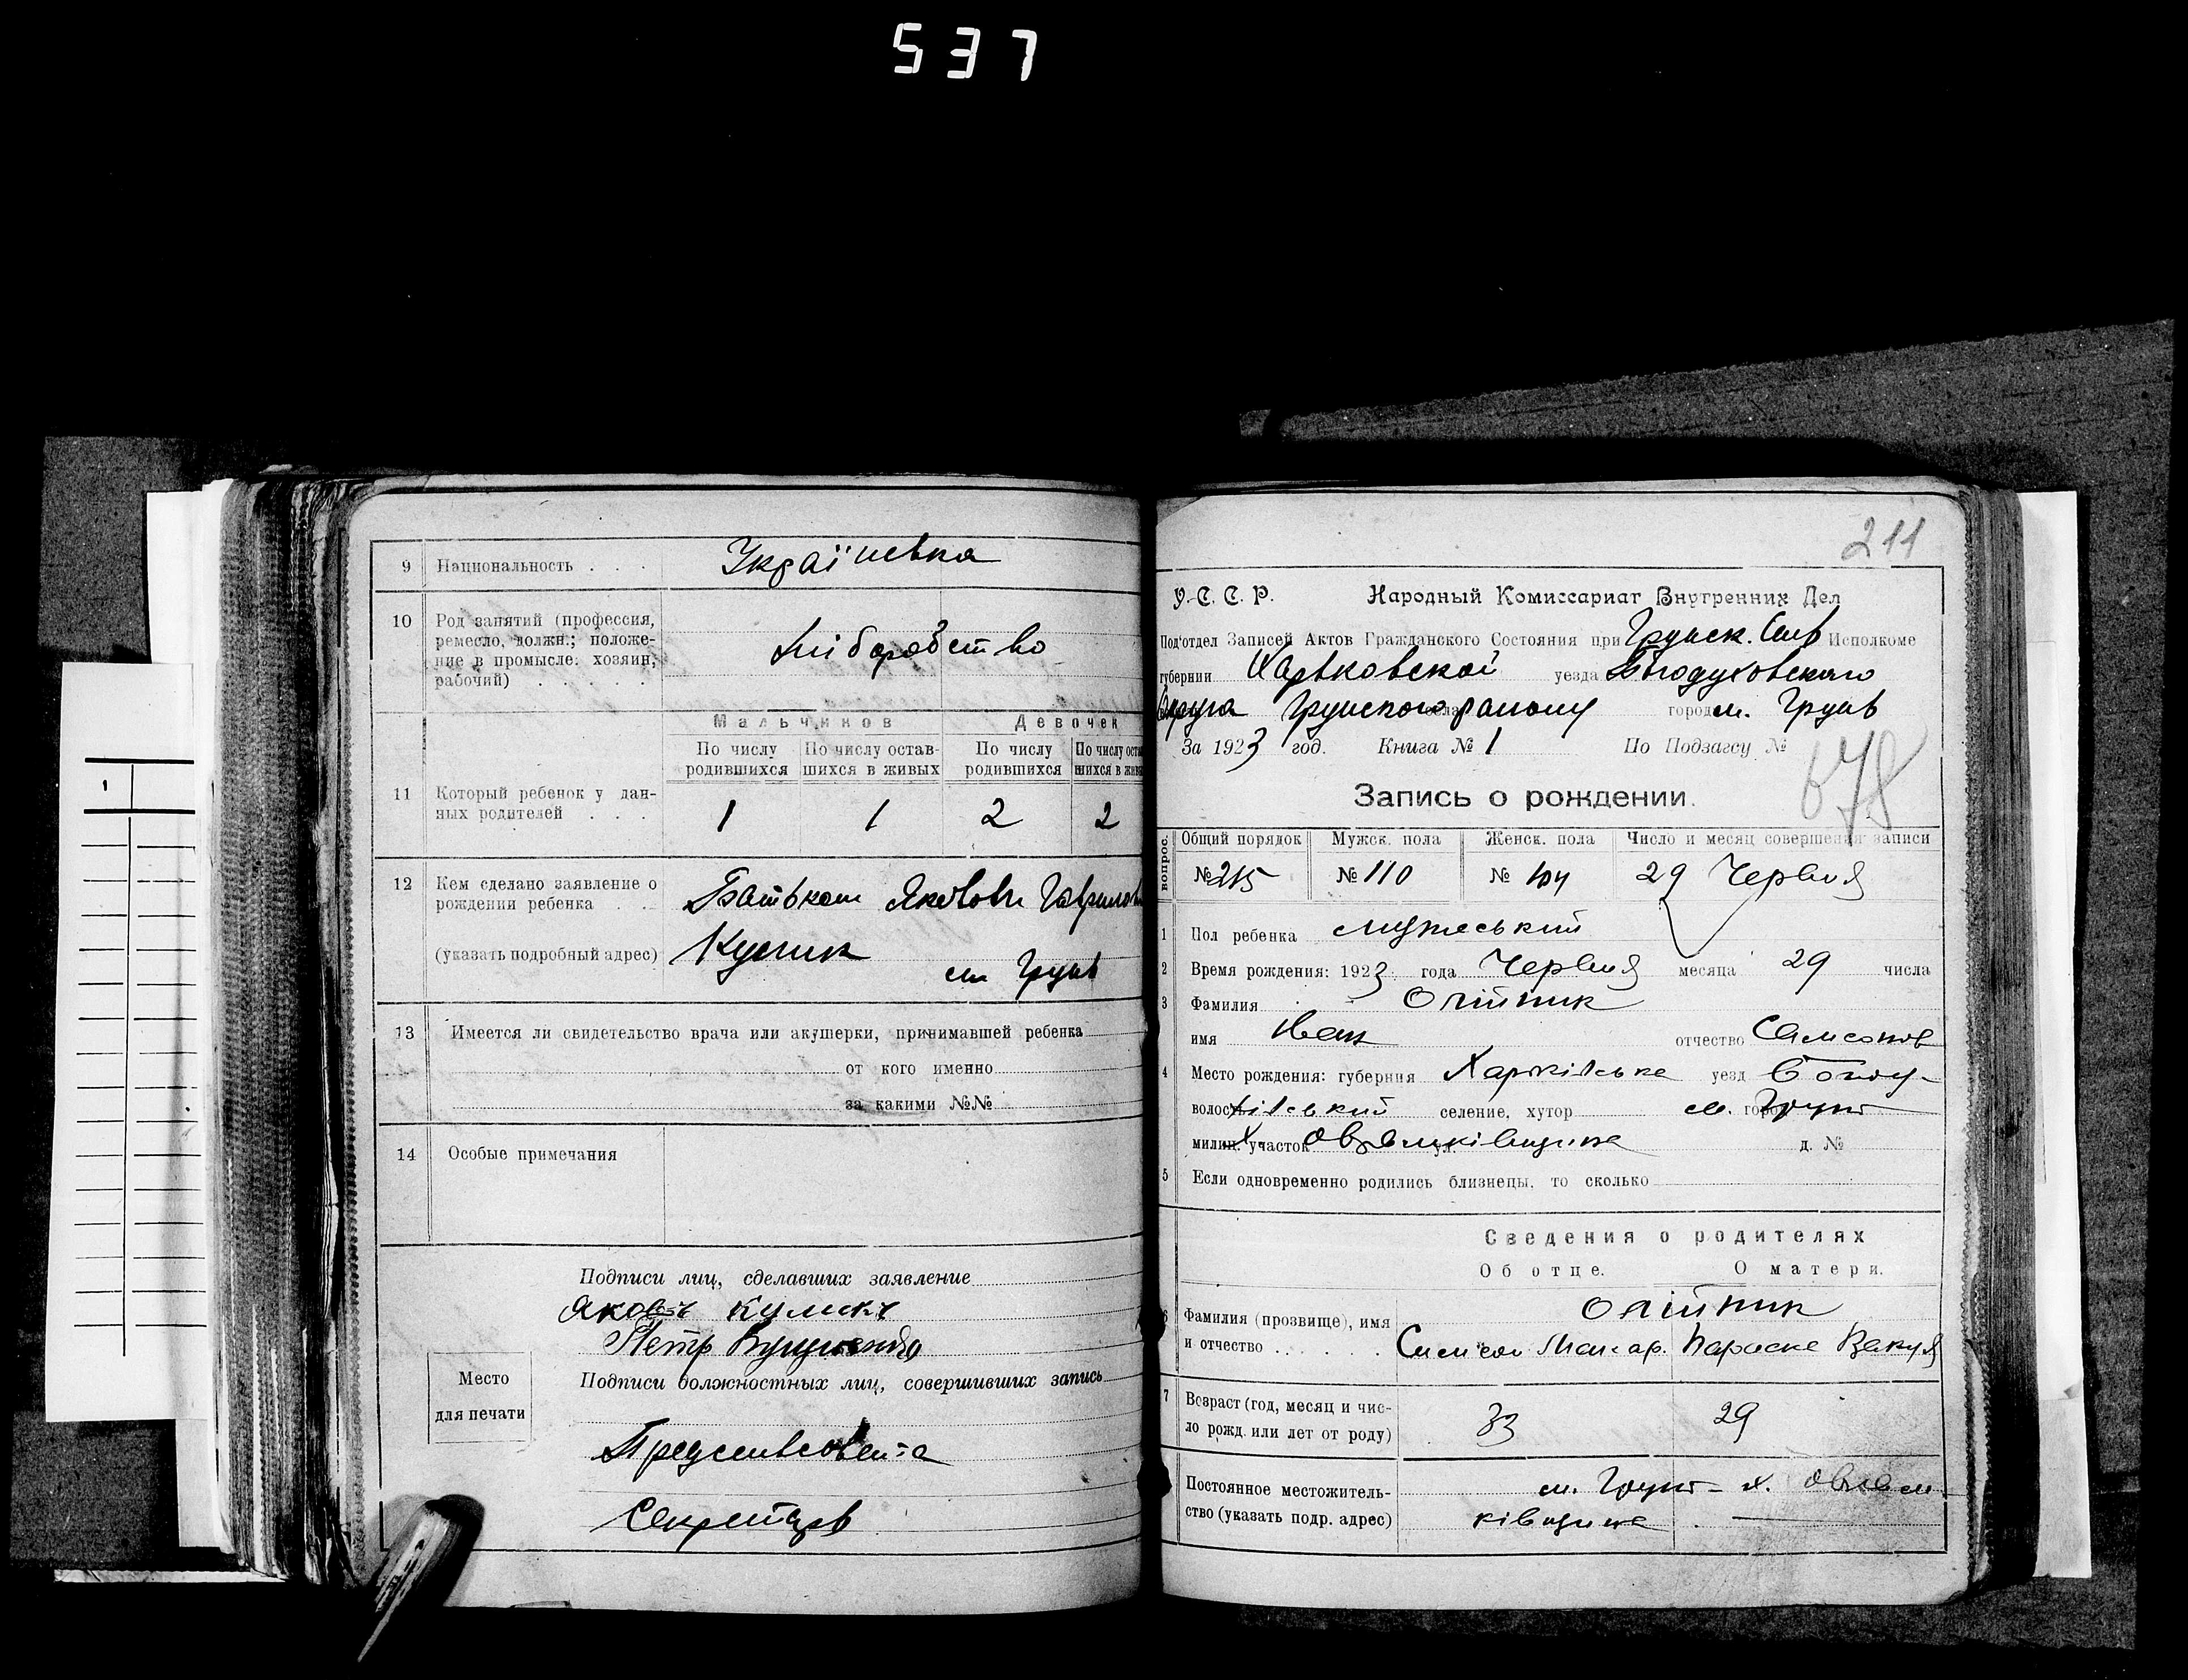 537
9 Национальность . . . Українська
10 Род занятий (профессия,
ремесло, должн.; положе-
ние в промысле: хозяин,
рабочий) . . . . . Хліборобство
Мальчиков Девочек
По числу родившихся По числу остав-шихся в живых По числу родившихся По числу оста шихся в живы
11 Который ребенок у дан-
ных родителей . . . 1 1 2 2
12 Кем сделано заявление о
рождении ребенка . . Батьком Яковом Гаврилов
(указать подробный адрес) Кулик
м. Грунь
13 Имеется ли свидетельство врача или акушерки, принимавшей ребенка
от кого именно
за какими №№
14 Особые примечания
Подписи лиц, сделавших заявление
Яковъ Куликъ
Петр
Подписи должностных лиц, совершивших запись
Место
для печати
Предсельсовета
Секретарь
211
У.С.С.Р. Народный Комиссариат Внутренних Дел
Подотдел Записей Актов Гражданского Состояния при Грунск. Сель Исполкоме
губернии Харьковской уезда Богодуховского
Округа Грунского району город м. Грунь
За 1923 год. Книга № 1 По Подзагсу №
678
Запись о рождении.
вопрос. Общий порядок Мужск. пола Женск. пола Число и месяц совершения записи
№ 215 № 110 № 104 29 Червня
1 Пол ребенка мужеський
2 Время рождения: 1923 года Червня месяца 29 числа
3 Фамилия Олійник
имя Иван отчество Самсонов
4 Место рождения: губерния Харківська уезд Богоду-
волость хівський селение, хутор м. город Грунь
милиц. участок Х. ул. д. №
5 Если одновременно родились близнецы, то сколько
Сведения о родителях
Об отце. О матери.
6 Фамилия (прозвище), имя
и отчество . . . . . .
Олійник
Самсон Макар. Параска Вакул
7 Возраст (год, месяц и чис-
ло рожд. или лет от роду) 33 29
Постоянное местожитель-
ство (указать подр. адрес)
м. Грунь - х.
ківщина